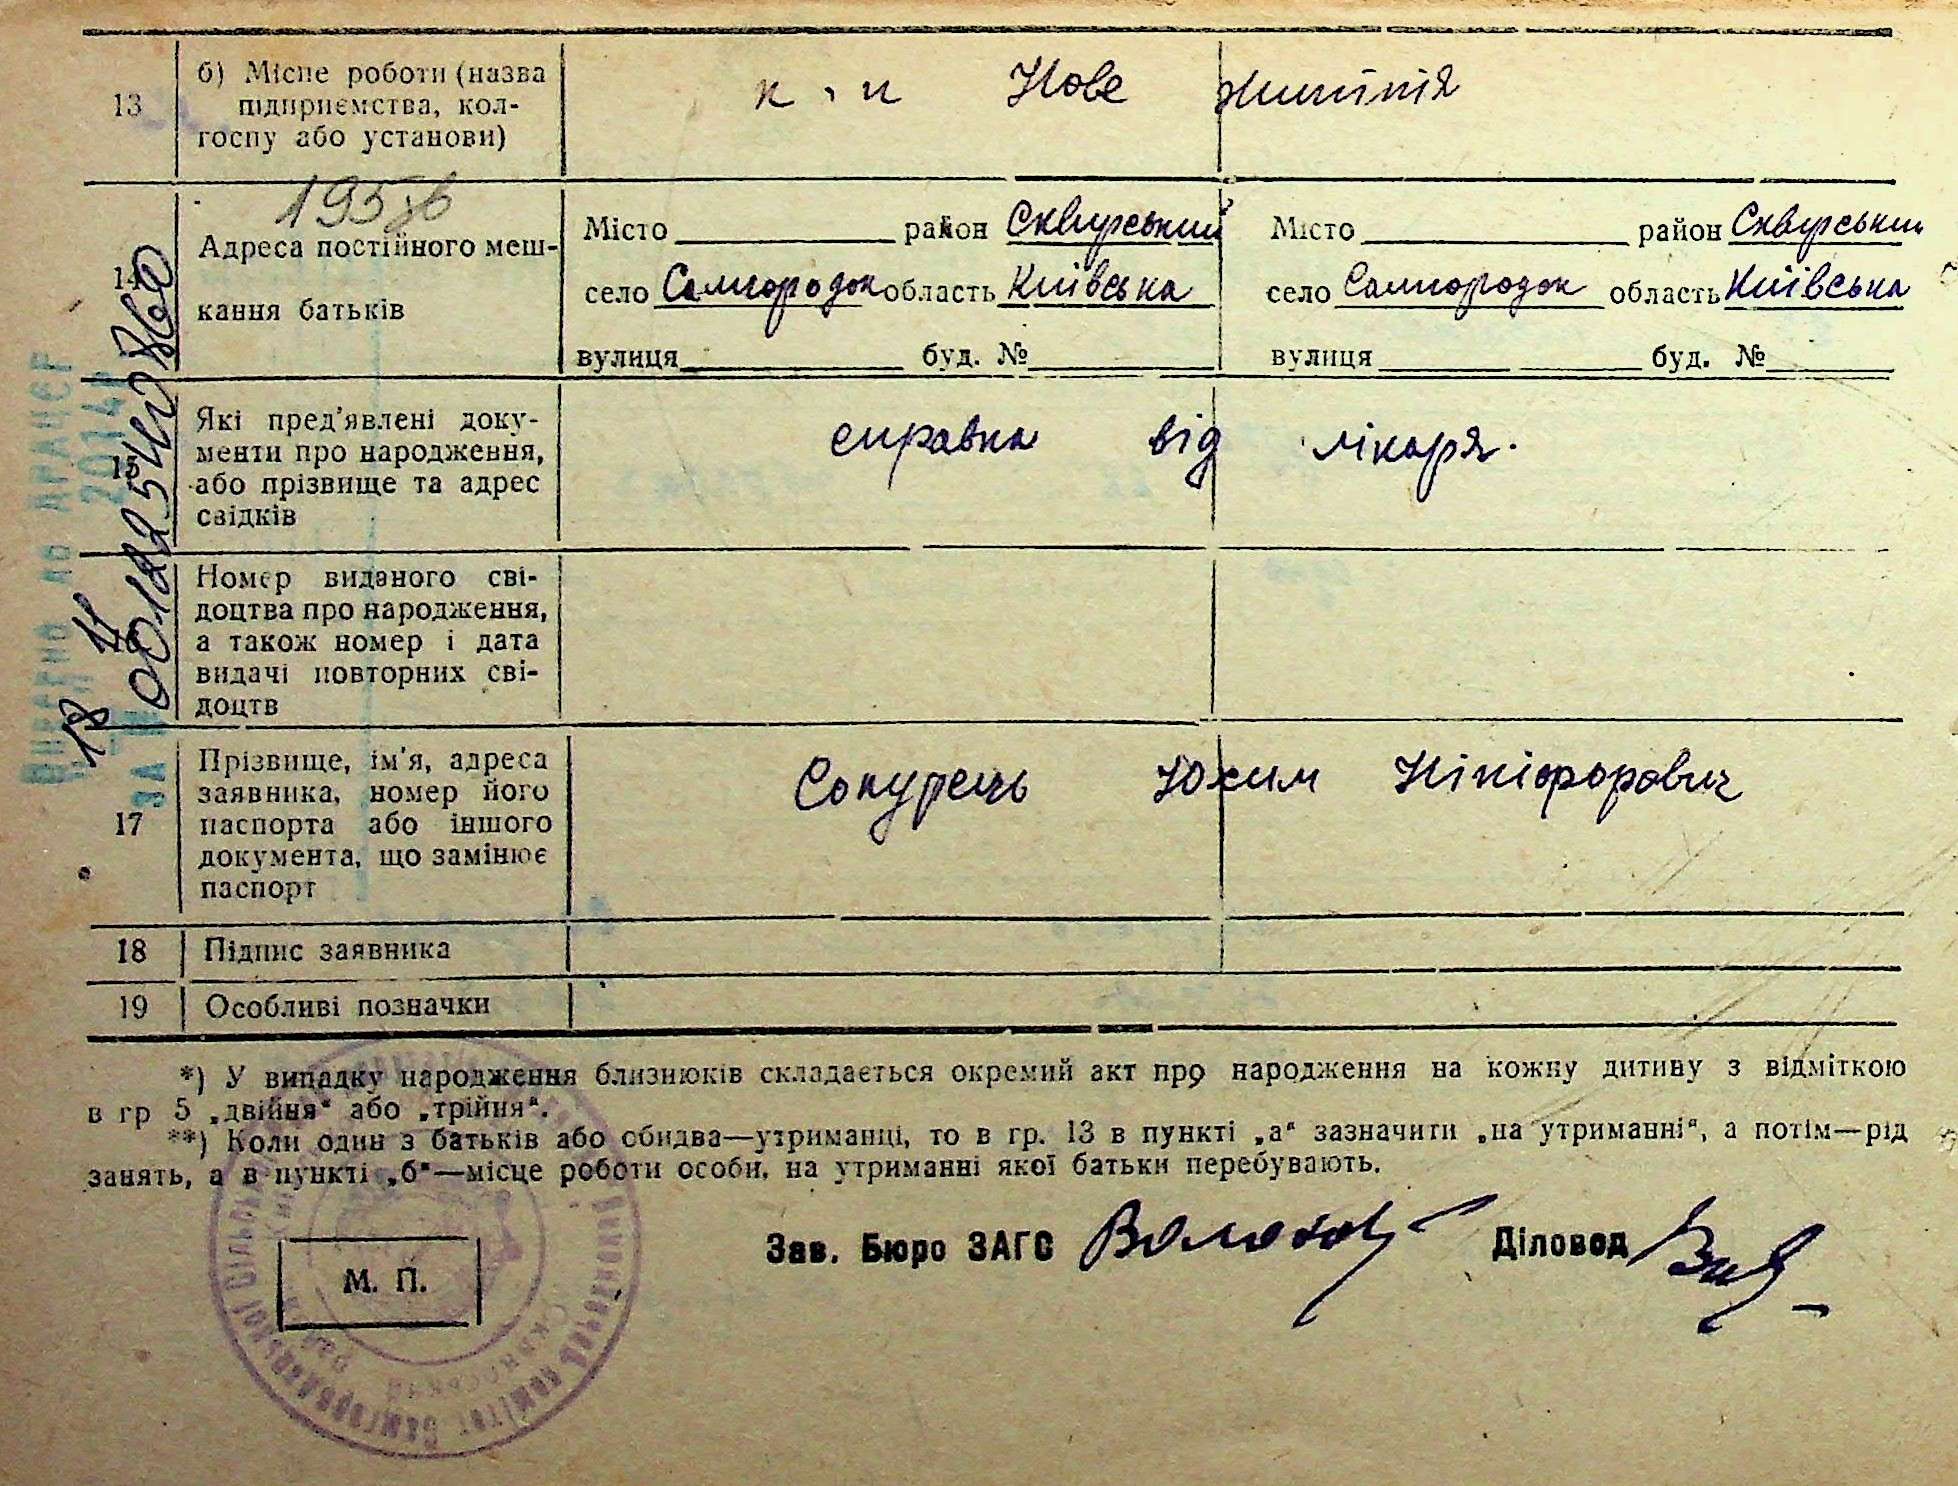 13 б) Місце роботи (назва
підприємства, кол-
госпу або установи)
Нове життя
195
14 Адреса постійного меш-
кання батьків
Місто район Сквирський Місто район Сквирський
село Самгородок область Київська село Самгородок область Київська
вулиця буд. № вулиця буд. №
15 Які пред'явлені доку-
менти про народження,
або прізвище та адрес
свідків
справка від лікаря.
16 Номер виданого сві-
доцтва про народження,
а також номер і дата
видачі повторних сві-
доцтв
17 Прізвище, ім'я, адреса
заявника, номер його
паспорта або іншого
документа, що замінює
паспорт
Сокурець Юхим Нікіфорович
18 Підпис заявника
19 Особливі позначки
*) У випадку народження близнюків складається окремий акт про народження на кожну дитину з відміткою
в гр 5 „двійня“ або „трійня“.
**) Коли один з батьків або обидва—утриманці, то в гр. 13 в пункті „а“ зазначити „на утриманні“, а потім—рід
занять, а в пункті „б“—місце роботи особи, на утриманні якої батьки перебувають.
Зав. Бюро ЗАГС Діловод
М. П.
Виконавчий комітет Самгородської сільської